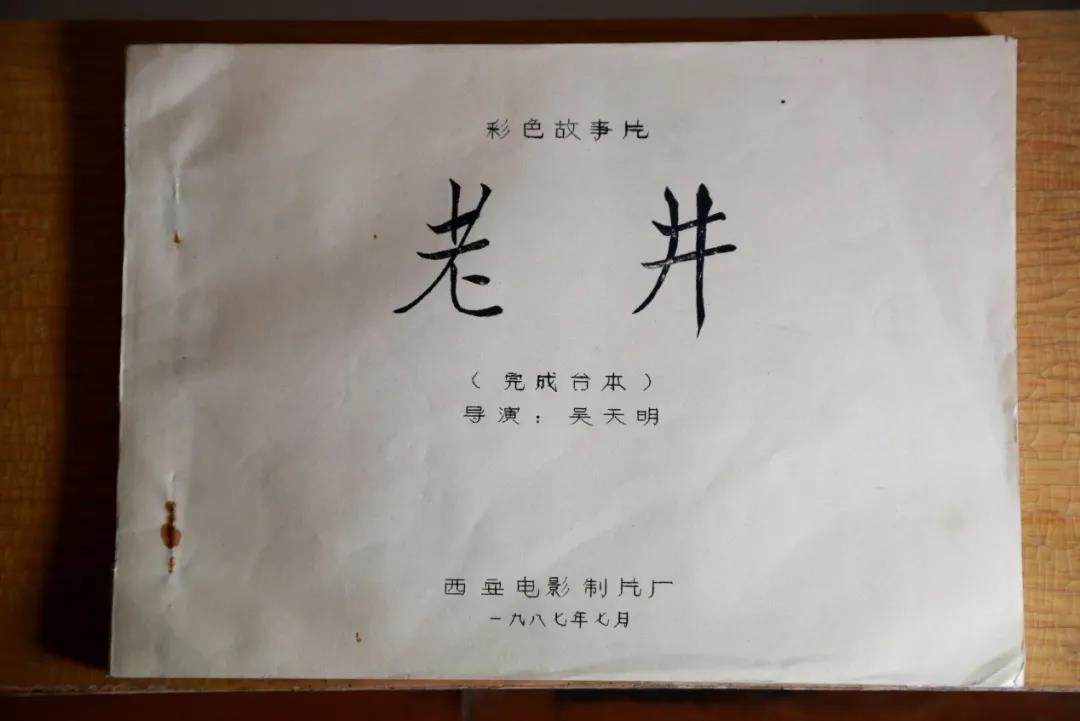 彩色故事片
老井
(完成台本)
导演：吴天明
西安电影制片厂
一九八七年七月